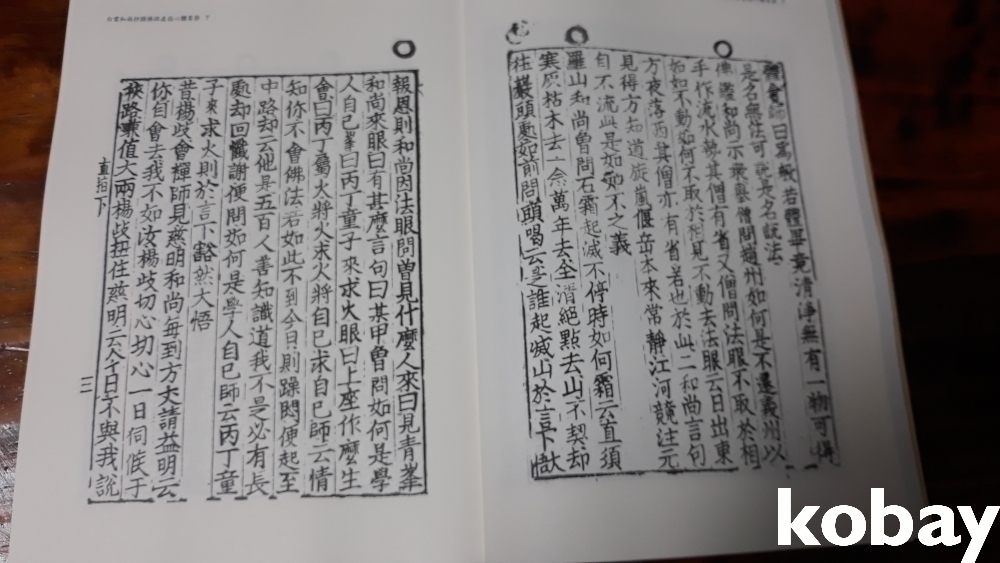 會師曰爲般若體畢竟清淨無有一物可得
是名無法可說是名說法
佛鑑和尚示衆擧僧問趙州如何是不遷義州以
手作流水勢其僧有省又僧問法眼不取於相
如如不動如何不取於相見不動去法眼云日出東
方夜落西其僧亦有省若也於此二和尚言句
見得方知道旋嵐偃岳本來常靜江河競注元
自不流此是如如不之義
羅山和尚曾問石霜起滅不停時如何霜云直須
寒灰枯木去一念萬年去全清絕點去山不契却
往巖頭處如前問頭喝云是誰起滅山於言下大
白雲和尚抄錄佛祖直指心體要節 下
報恩則和尚因法眼問曾見什麼人來曰見青峯
和尚來眼曰有甚麼言句曰某甲曾問如何是學
人自己峯曰丙丁童子來求火眼曰上座作麼生
會曰丙丁屬火將火求火將自己求自己師云情
知你不會佛法若如此不到今日則躁悶便起至
中路却云他是五百人善知識道我不是必有長
處却回懺謝便問如何是學人自己師云丙丁童
子來求火則於言下豁然大悟
昔楊歧會禪師見慈明和尚每到方丈請益明云
你自會去我不如汝楊歧切心切心一日伺候于
挾路兼值大雨楊歧扭住慈明云今日不與我說
直指下
三
kobay